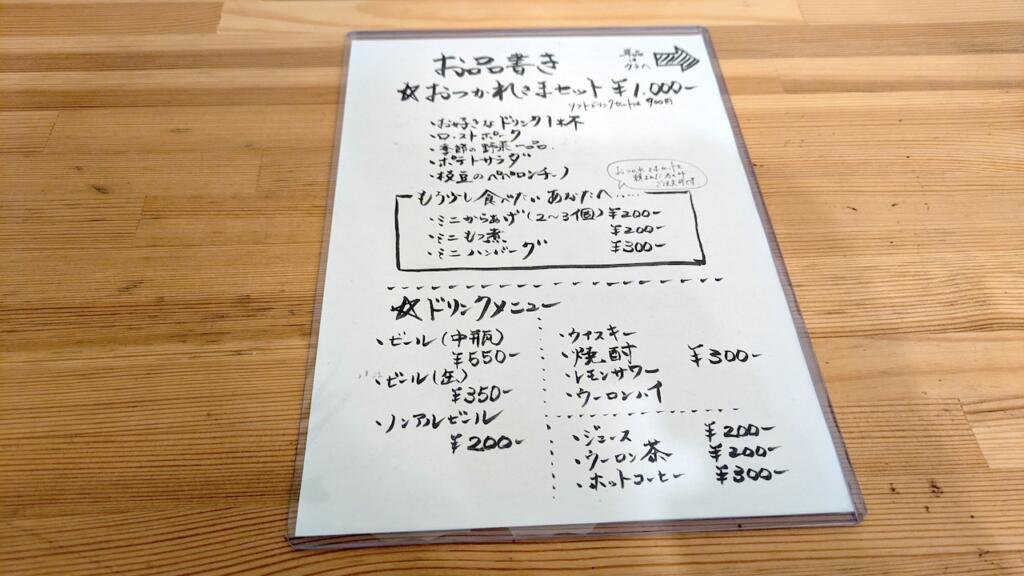 お品書き
単品は
うらへ
☆おつかれさまセット ¥1,000-
ソフトドリンクセットは 900円
・お好きなドリンク1杯
・ローストポーク
・季節の野菜一品.
・ポテトサラダ
・枝豆のペペロンチーノ
おつかれさまセットを
ご注文の方
もう少し食べたいあなたへ......
・ミニからあげ(2〜3個) ¥200-
・ミニもつ煮 ¥200-
・ミニハンバーグ ¥300-
☆ドリンクメニュー
・ビール(中瓶)
¥550-
・ビール(缶)
¥350-
・ノンアルビール
¥200-
・ウイスキー
・焼酎 ¥300-
・レモンサワー
・ウーロンハイ
・ジュース ¥200-
・ウーロン茶 ¥200-
・ホットコーヒー ¥300-